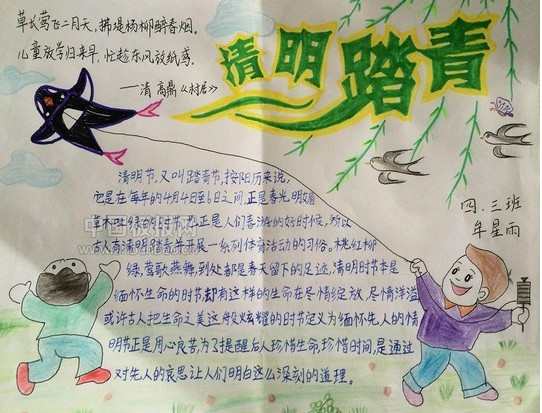 草长莺飞二月天，拂堤杨柳醉春烟。
儿童放学归来早，忙趁东风放纸鸢。
——清 高鼎《村居》
清明踏青
四、三班
牟星雨
清明节，又叫踏青节，按阳历来说，
它是在每年的4月4日至6日之间，正是春光明媚
草木吐绿的时节，也正是人们春游的好时候，所以
古人有清明踏青并开展一系列体育活动的习俗。桃红柳
绿，莺歌燕舞，到处都是春天留下的足迹，清明时节本是
缅怀生命的时节，却有这样的生命在尽情绽放，尽情洋溢
或许古人把生命之美这般炫耀的时节定义为缅怀先人的清
明节正是用心良苦，为了提醒后人珍惜生命，珍惜时间，是通过
对先人的哀思让人们明白这么深刻的道理。